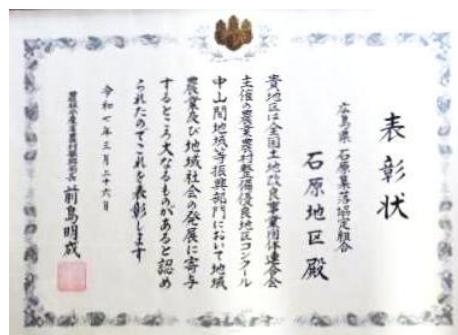 表彰状
広島県 石原集落協定組合
石原地区殿
貴地区は全国土地改良事業団体連合会
主催の農業農村整備優良地区コンクール
中山間地域等振興部門において地域
農業及び地域社会の発展に寄与
するところ大なるものがあると認め
られたのでこれを表彰します
令和七年三月二十六日
農林水産省農村振興局長 前島明成